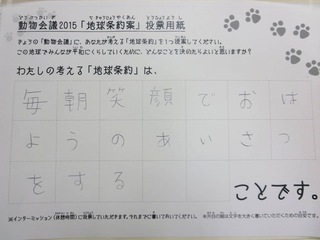 動物会議2015「地球条約案」投票用紙
きょうの「動物会議」に、あなたが考える「地球条約」を1つ提案してください。
この地球でみんなが平和にくらしていくために、どんなことを決めたらよいと思いますか?
わたしの考える「地球条約」は、
毎朝笑顔でおは
ようのあいさつ
をする
ことです。
※インターミッション(休憩時間)に投票していただきます。それまでに書いておいてください。